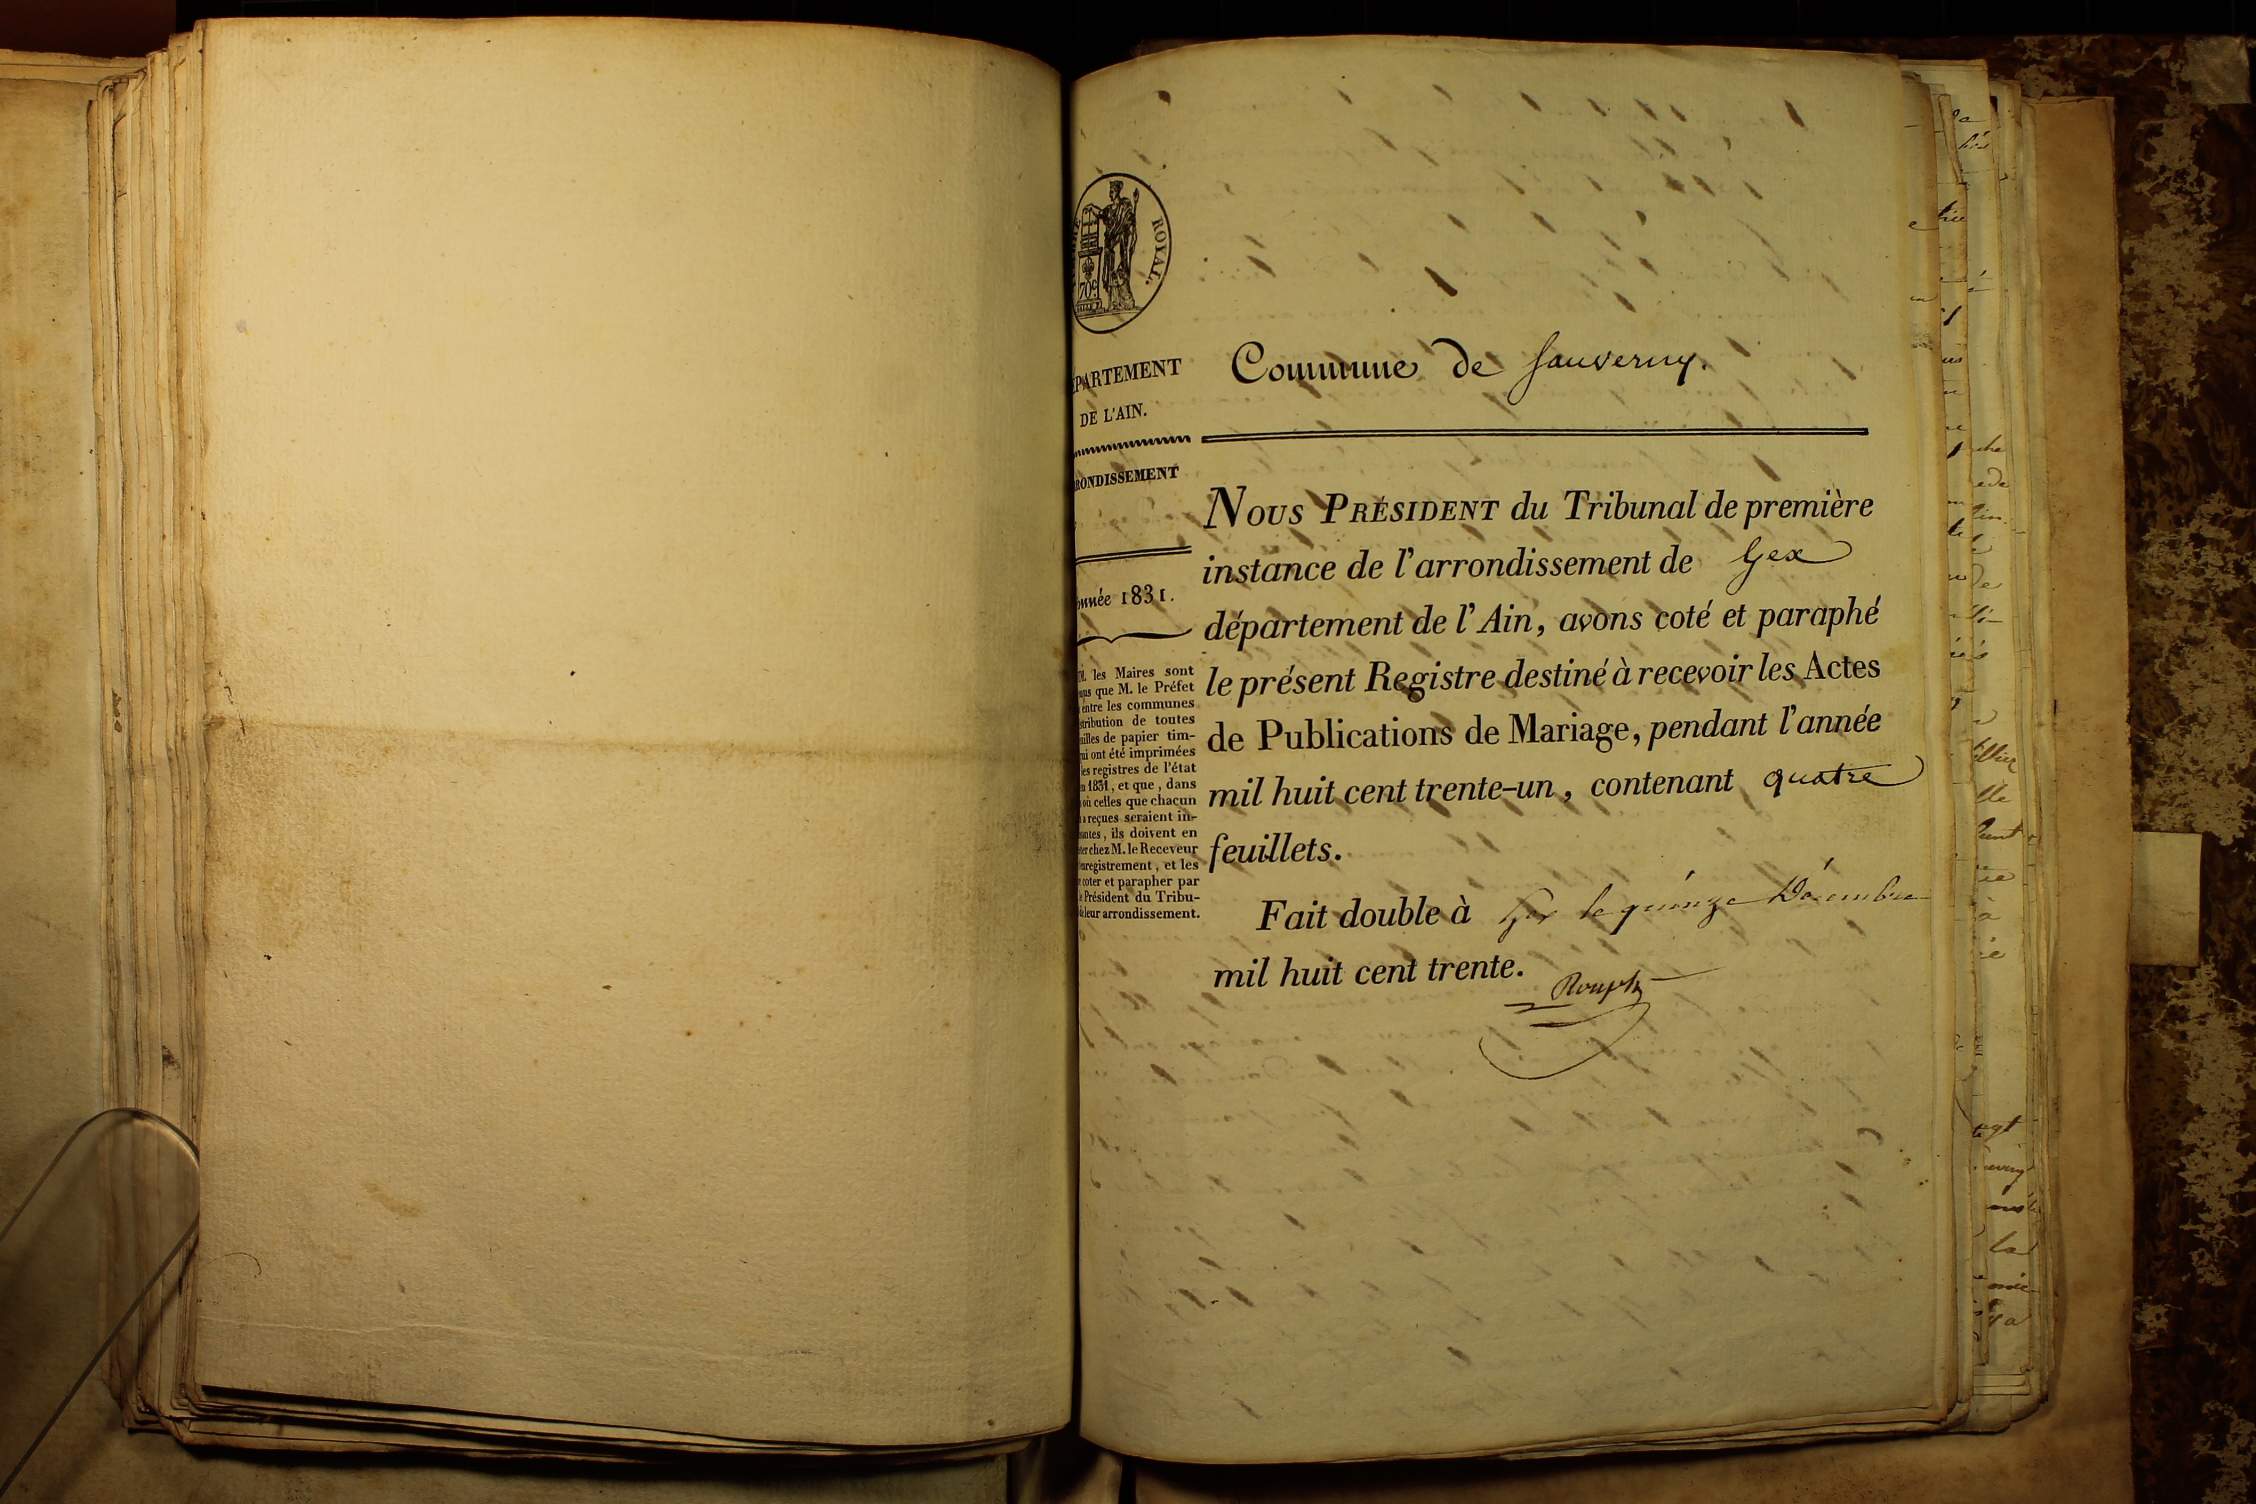 ROYAL.
70c
PARTEMENT
DE L'AIN.
RONDISSEMENT
nnée 1831.
les Maires sont
que M. le Préfet
entre les communes
tribution de toutes
uilles de papier tim-
ui ont été imprimées
es registres de l'état
1831, et que, dans
où celles que chacun
reçues seraient in-
santes, ils doivent en
ter chez M. le Receveur
nregistrement, et les
coter et parapher par
Président du Tribu-
leur arrondissement.
Commune de Sauverny.
NOUS PRÉSIDENT du Tribunal de première
instance de l'arrondissement de Gex
département de l'Ain, avons coté et paraphé
le présent Registre destiné à recevoir les Actes
de Publications de Mariage, pendant l'année
mil huit cent trente-un, contenant quatre
feuillets.
Fait double à Gex le quinze Décembre
mil huit cent trente.